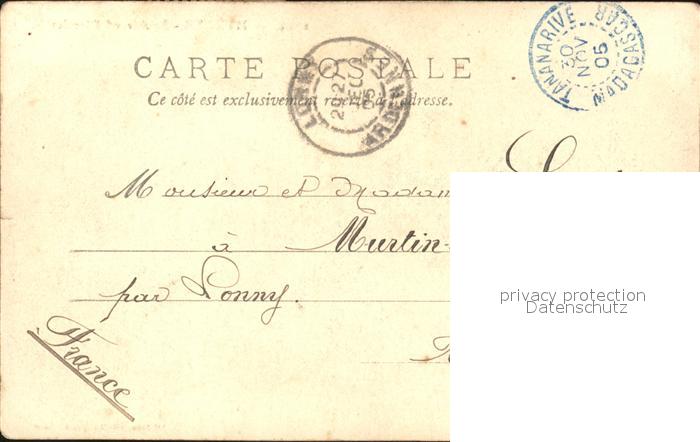 CARTE POSTALE
Ce côté est exclusivement réservé à l'adresse.
TANANARIVE
30
NOV
05
MADAGASCAR
LONNY
DEC
05
ARDENNES
Monsieur et Madam
à Murtin-
par Lonny.
France
privacy protection
Datenschutz